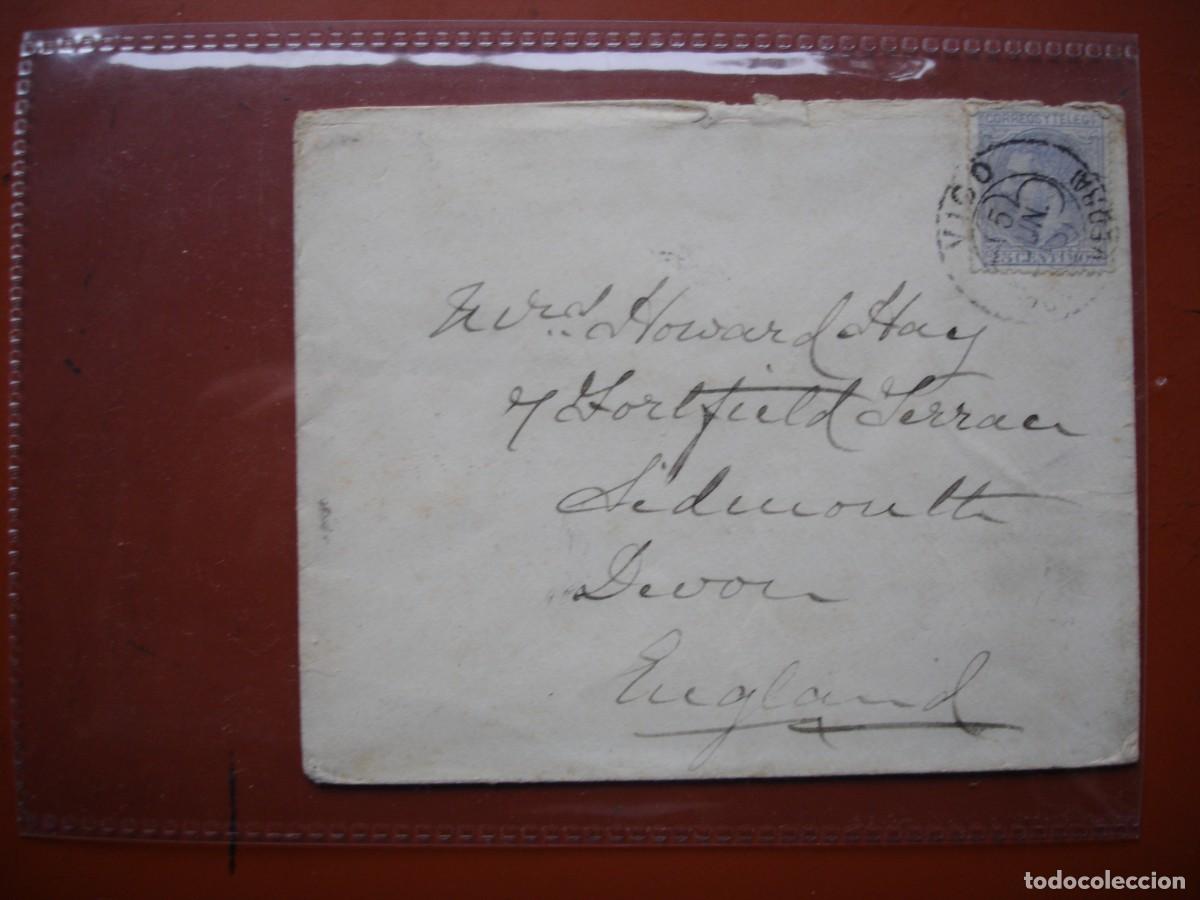 CORREOS Y TELEGS
VIGO
5 JUN.
25 CENTIMOS
Mrs. Howard Hay
7 Fortfield Terrace
Sidmouth
Devon
England
todocoleccion